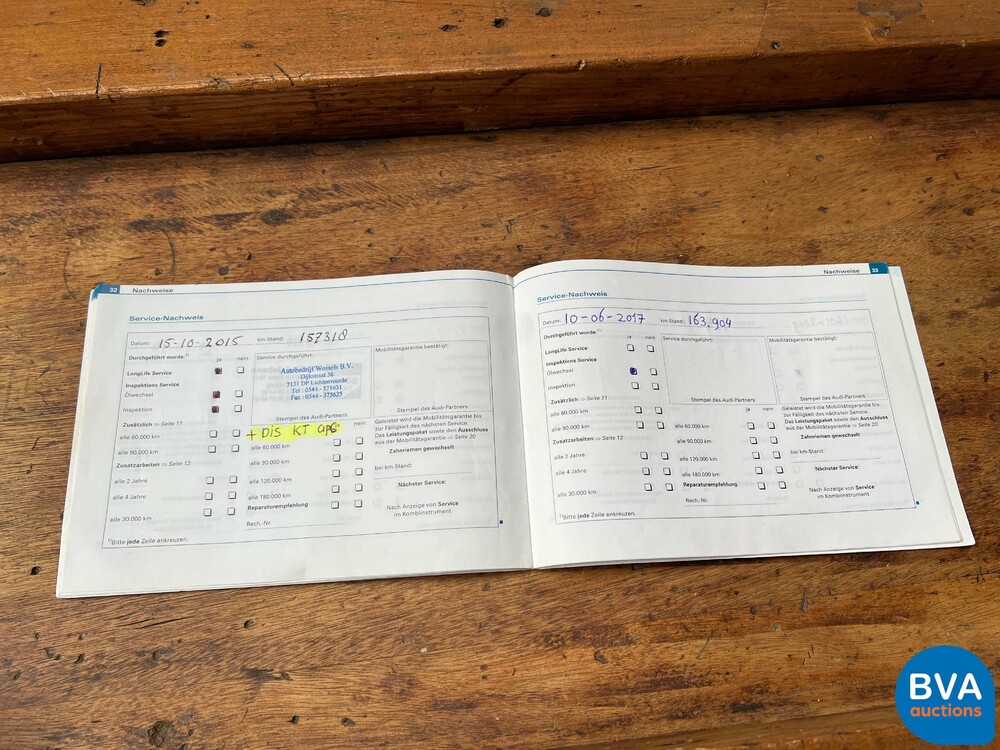 32 Nachweise
Service-Nachweis
Datum: 15-10-2015 km-Stand: 157318
Durchgeführt wurde:¹⁾ ja nein
LongLife Service
Inspektions Service
Ölwechsel
Inspektion
Service durchgeführt:
Autobedrijf Wessels B.V.
Dijkstraat 38
7131 DP Lichtenvoorde
Tel : 0544 - 371631
Fax : 0544 - 375635
Stempel des Audi-Partners
Mobilitätsgarantie bestätigt:
Stempel des Audi-Partners
Zusätzlich ⇨ Seite 11
alle 60.000 km
alle 90.000 km
Zusatzarbeiten ⇨ Seite 12
alle 2 Jahre
alle 4 Jahre
alle 30.000 km
+ DIS KT
nein
alle 60.000 km
alle 90.000 km
alle 120.000 km
alle 180.000 km
Reparaturempfehlung
Rech.-Nr.
Geleistet wird die Mobilitätsgarantie bis
zur Fälligkeit des nächsten Service.
Das Leistungspaket sowie den Ausschluss
aus der Mobilitätsgarantie ⇨ Seite 20
Zahnriemen gewechselt
bei km-Stand:
Nächster Service:
Nach Anzeige von Service
im Kombiinstrument
¹⁾Bitte jede Zeile ankreuzen.
Nachweise 33
Service-Nachweis
Datum: 10-06-2017 km-Stand: 163.904
Durchgeführt wurde:¹⁾ ja nein
LongLife Service
Inspektions Service
Ölwechsel
Inspektion
Service durchgeführt:
Stempel des Audi-Partners
Mobilitätsgarantie bestätigt:
Stempel des Audi-Partners
Zusätzlich ⇨ Seite 11
alle 60.000 km
alle 90.000 km
Zusatzarbeiten ⇨ Seite 12
alle 2 Jahre
alle 4 Jahre
alle 30.000 km
ja nein
alle 60.000 km
alle 90.000 km
alle 120.000 km
alle 180.000 km
Reparaturempfehlung
Rech.-Nr.
Geleistet wird die Mobilitätsgarantie bis
zur Fälligkeit des nächsten Service.
Das Leistungspaket sowie den Ausschluss
aus der Mobilitätsgarantie ⇨ Seite 20
Zahnriemen gewechselt
bei km-Stand:
Nächster Service:
Nach Anzeige von Service
im Kombiinstrument
¹⁾Bitte jede Zeile ankreuzen.
BVA
auctions